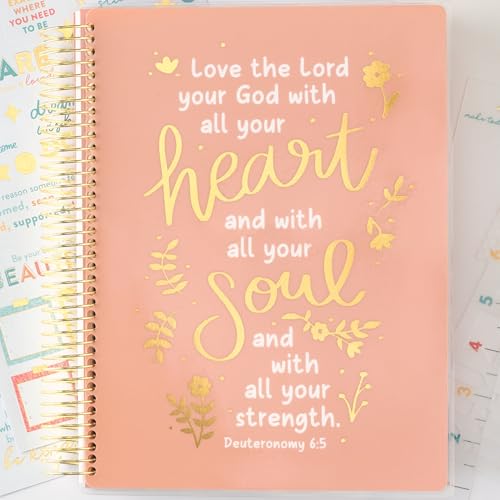 EXACTLY
WHERE YOU
NEED TO BE
Love the Lord
your God with
all your
heart
and with
all your
Soul
and
with
all your
strength.
Deuteronomy 6:5
reason someone
Be your
BEAU
1
2
3
4
5